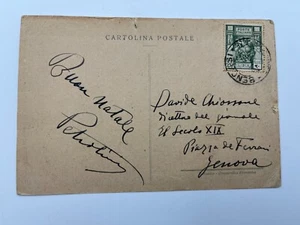 CARTOLINA POSTALE
Buon Natale
Davide Chiossone
direttore del giornale
Il Secolo XIX
Piazza de Ferrari
Genova